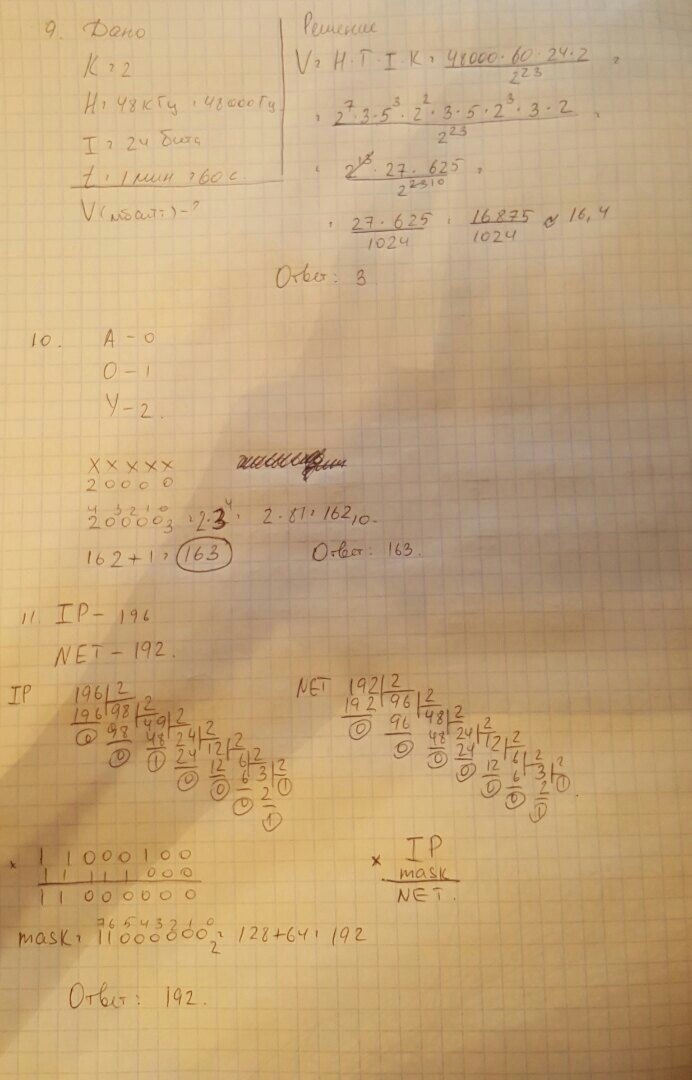 9. Дано
Решение
K = 2
H = 48 кГц = 48000 Гц
I = 24 бита
t = 1 мин = 60 с.
V (мбайт) - ?
V = H · T · I · K = 48000 · 60 · 24 · 2 / 2^23 =
= 2^7 · 3 · 5^3 · 2^2 · 3 · 5 · 2^3 · 3 · 2 / 2^23 =
= 2^13 · 27 · 625 / 2^23 10 =
= 27 · 625 / 1024 = 16875 / 1024 ≈ 16,4
Ответ: 3
10. А - 0
О - 1
У - 2.
X X X X X
2 0 0 0 0
4 3 2 1 0
20000₃ = 2·3^4 = 2·81 = 162₁₀.
162 + 1 = 163
Ответ: 163.
11. IP - 196
NET - 192.
IP
196 2
196 98 2
0 98 49 2
0 48 24 2
1 24 12 2
0 12 6 2
0 6 3 2
0 2 1
1
NET
192 2
192 96 2
0 96 48 2
0 48 24 2
0 24 12 2
0 12 6 2
0 6 3 2
0 2 1
1
× 1 1 0 0 0 1 0 0
1 1 1 1 1 0 0 0
1 1 0 0 0 0 0 0
× IP
mask
NET.
7 6 5 4 3 2 1 0
mask = 11000000₂ = 128 + 64 = 192
Ответ: 192.